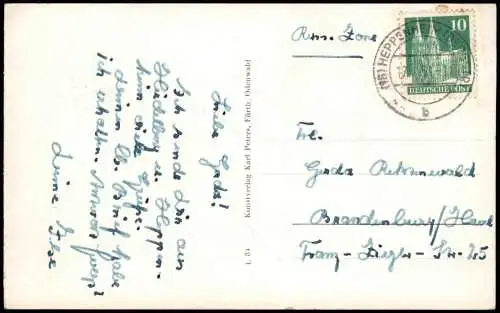 Liebe Gerda!
Ich sende Dir aus
Heidelberg u. Heppen-
heim viele Grüße.
deinen lb. Brief habe
ich erhalten. Antwort folgt!
Deine Ilse
L 84 Kunstverlag Karl Peters, Fürth, Odenwald
Russ. Zone
10
DEUTSCHE POST
(16) HEPPENHEIM
b
Frl.
Gerda
Brandenburg/Havel
Franz-Ziegler-Str. 25